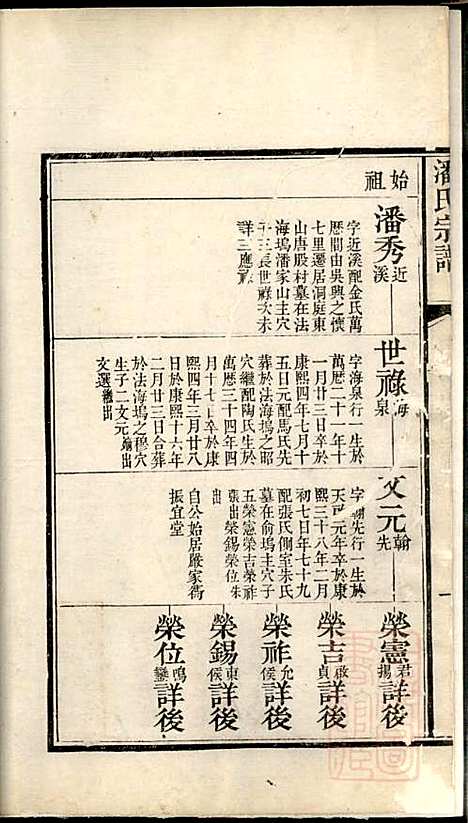 潘氏宗譜
始祖
潘秀 近溪
字近溪配金氏萬
歷間由吳興之懷
七里遷居洞庭東
山唐股村墓在法
海塢潘家山主穴
子三長世祿次未
詳三應祿
世祿 海泉
字海泉行一生於
萬歷二十一年十
一月廿三日卒於
康熙四年七月十
五日元配馬氏先
葬於法海塢之昭
穴繼配陶氏生於
萬歷三十四年四
月十七日卒於康
熙四年三月廿八
日於康熙十六年
二月廿三日合葬
於法海塢之穆穴
生子二文元繼出
文選繼出
文元 翰先
字翰先行一生於
天啟元年卒於康
熙三十八年二月
初七日年七十九
配張氏側室朱氏
墓在俞塢主穴子
五榮憲榮吉榮祚
張出榮錫榮位朱
出
自公始居嚴家衖
振宜堂
榮憲 君揚 詳後
榮吉 啟貞 詳後
榮祚 允侯 詳後
榮錫 東侯 詳後
榮位 鳴鑾 詳後
一